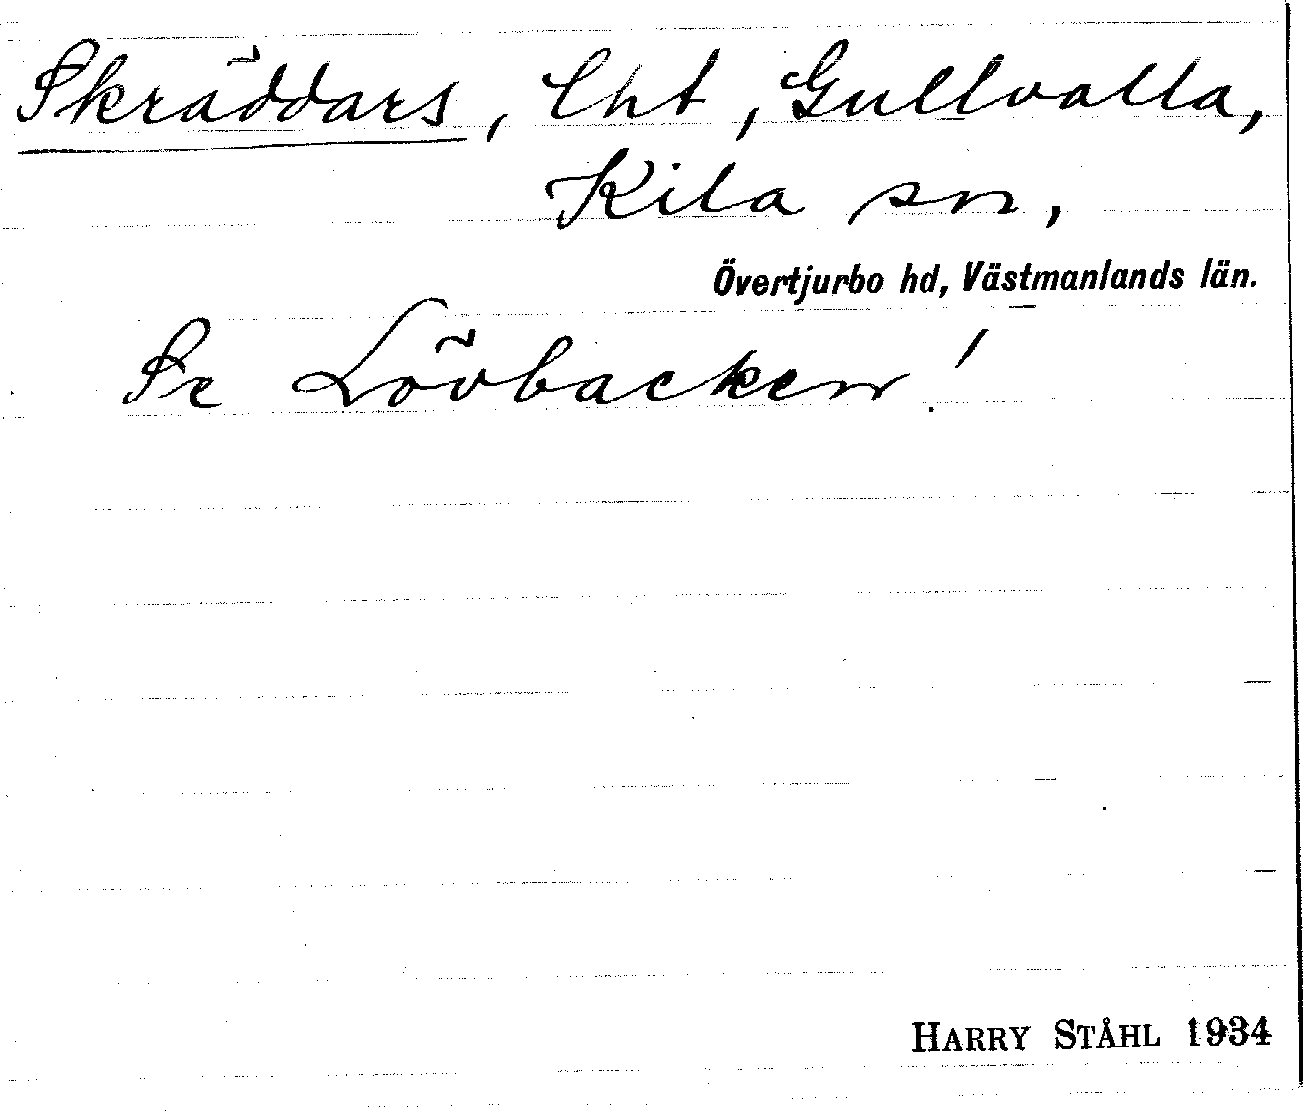 Skräddars, lht, Gullvalla,
Kila sn,
Övertjurbo hd, Västmanlands län.
Se Lövbacken!
HARRY STÅHL 1934